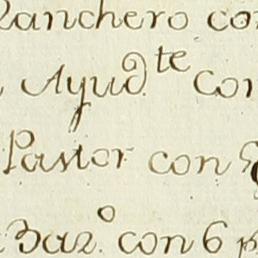 Ranchero con
Ayud.te con
Pastor con 9
Baz.o con 6 p